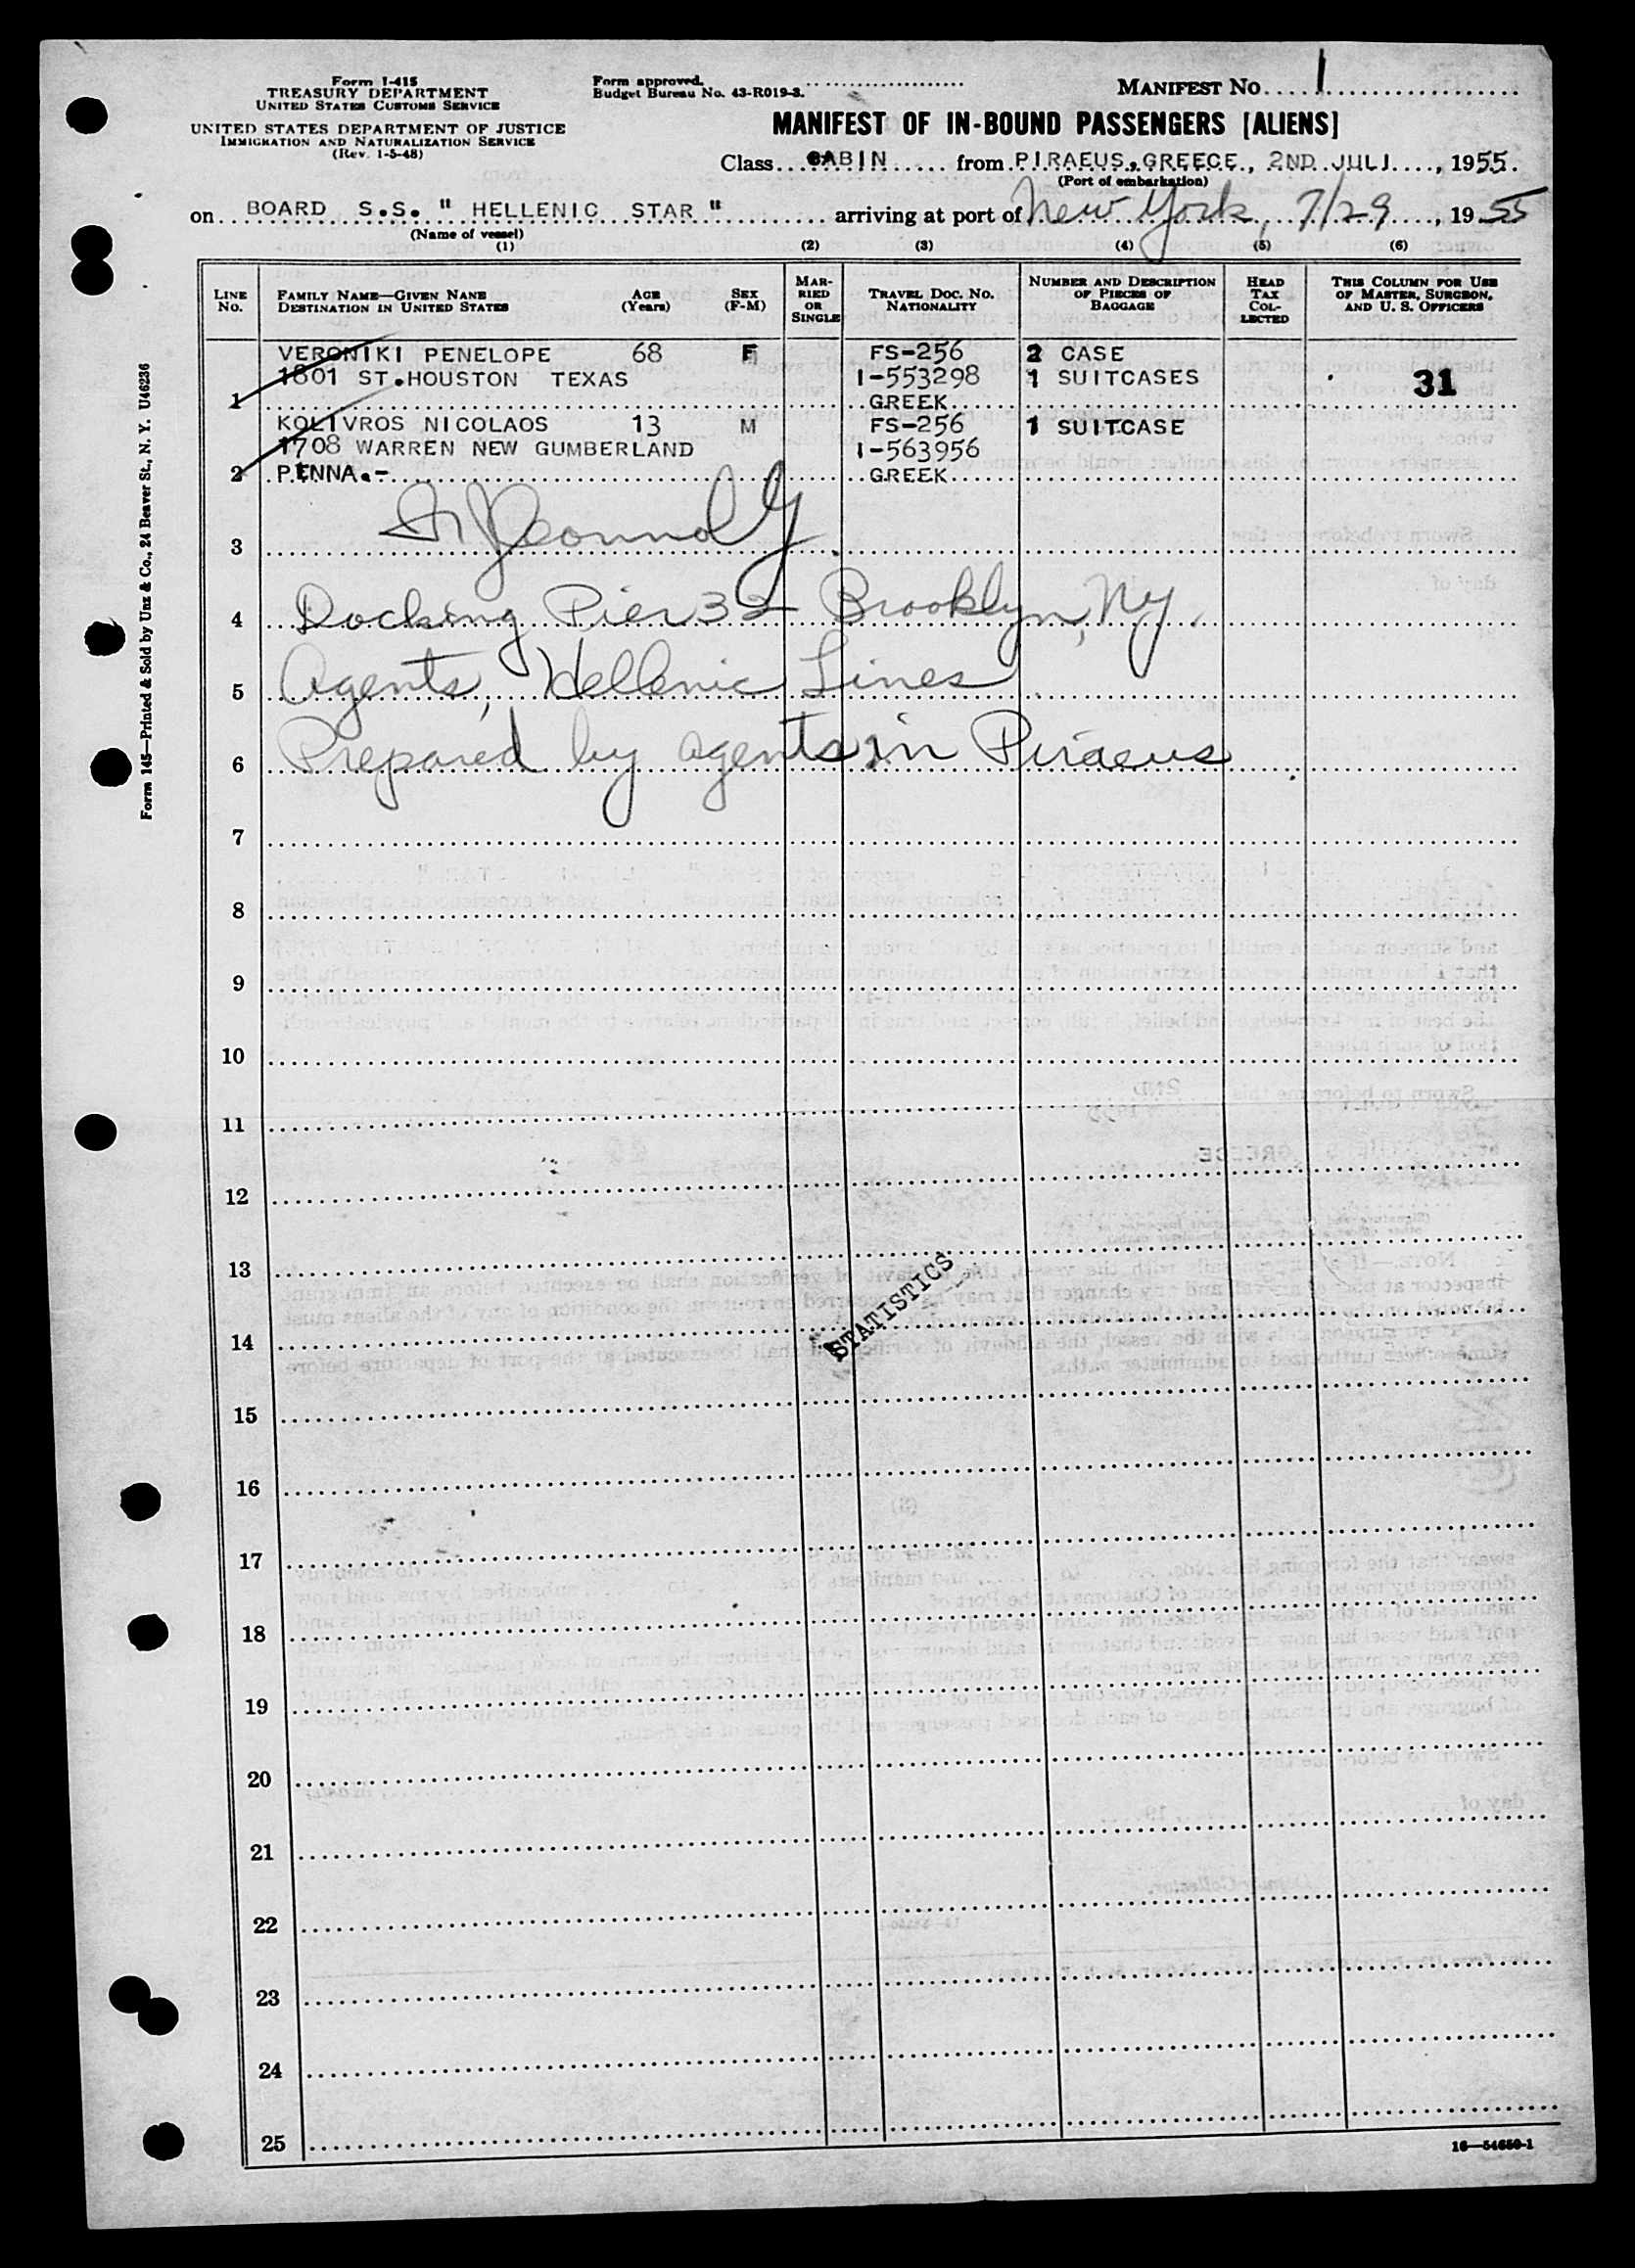 Form I-415
TREASURY DEPARTMENT
UNITED STATES CUSTOMS SERVICE
UNITED STATES DEPARTMENT OF JUSTICE
IMMIGRATION AND NATURALIZATION SERVICE
(Rev. 1-5-48)
Form approved.
Budget Bureau No. 43-R019-3.
MANIFEST NO. 1
MANIFEST OF IN-BOUND PASSENGERS [ALIENS]
Class CABIN from PIRAEUS, GREECE, 2ND JULI, 1955.
(Port of embarkation)
on BOARD S.S. " HELLENIC STAR " arriving at port of New York, 7/29, 1955
(Name of vessel)
(1) (2) (3) (4) (5) (6)
LINE NO. FAMILY NAME—GIVEN NANE DESTINATION IN UNITED STATES AGE (Years) SEX (F-M) MARRIED OR SINGLE TRAVEL DOC. NO. NATIONALITY NUMBER AND DESCRIPTION OF PIECES OF BAGGAGE HEAD TAX COLLECTED THIS COLUMN FOR USE OF MASTER, SURGEON, AND U. S. OFFICERS
VERONIKI PENELOPE 68 F FS-256 2 CASE
1801 ST.HOUSTON TEXAS I-553298 1 SUITCASES 31
1 GREEK
KOLIVROS NICOLAOS 13 M FS-256 1 SUITCASE
1708 WARREN NEW GUMBERLAND I-563956
2 PENNA.- GREEK
3
4 Docking Pier 33 Brooklyn, Ny.
5 Agents, Hellenic Lines
6 Prepared by agents in Piraeus
7
8
9
10
11
12
13
STATISTICS
14
15
16
17
18
19
20
21
22
23
24
25
16—54650-1
Form 145—Printed & Sold by Unz & Co., 24 Beaver St., N. Y. U46236